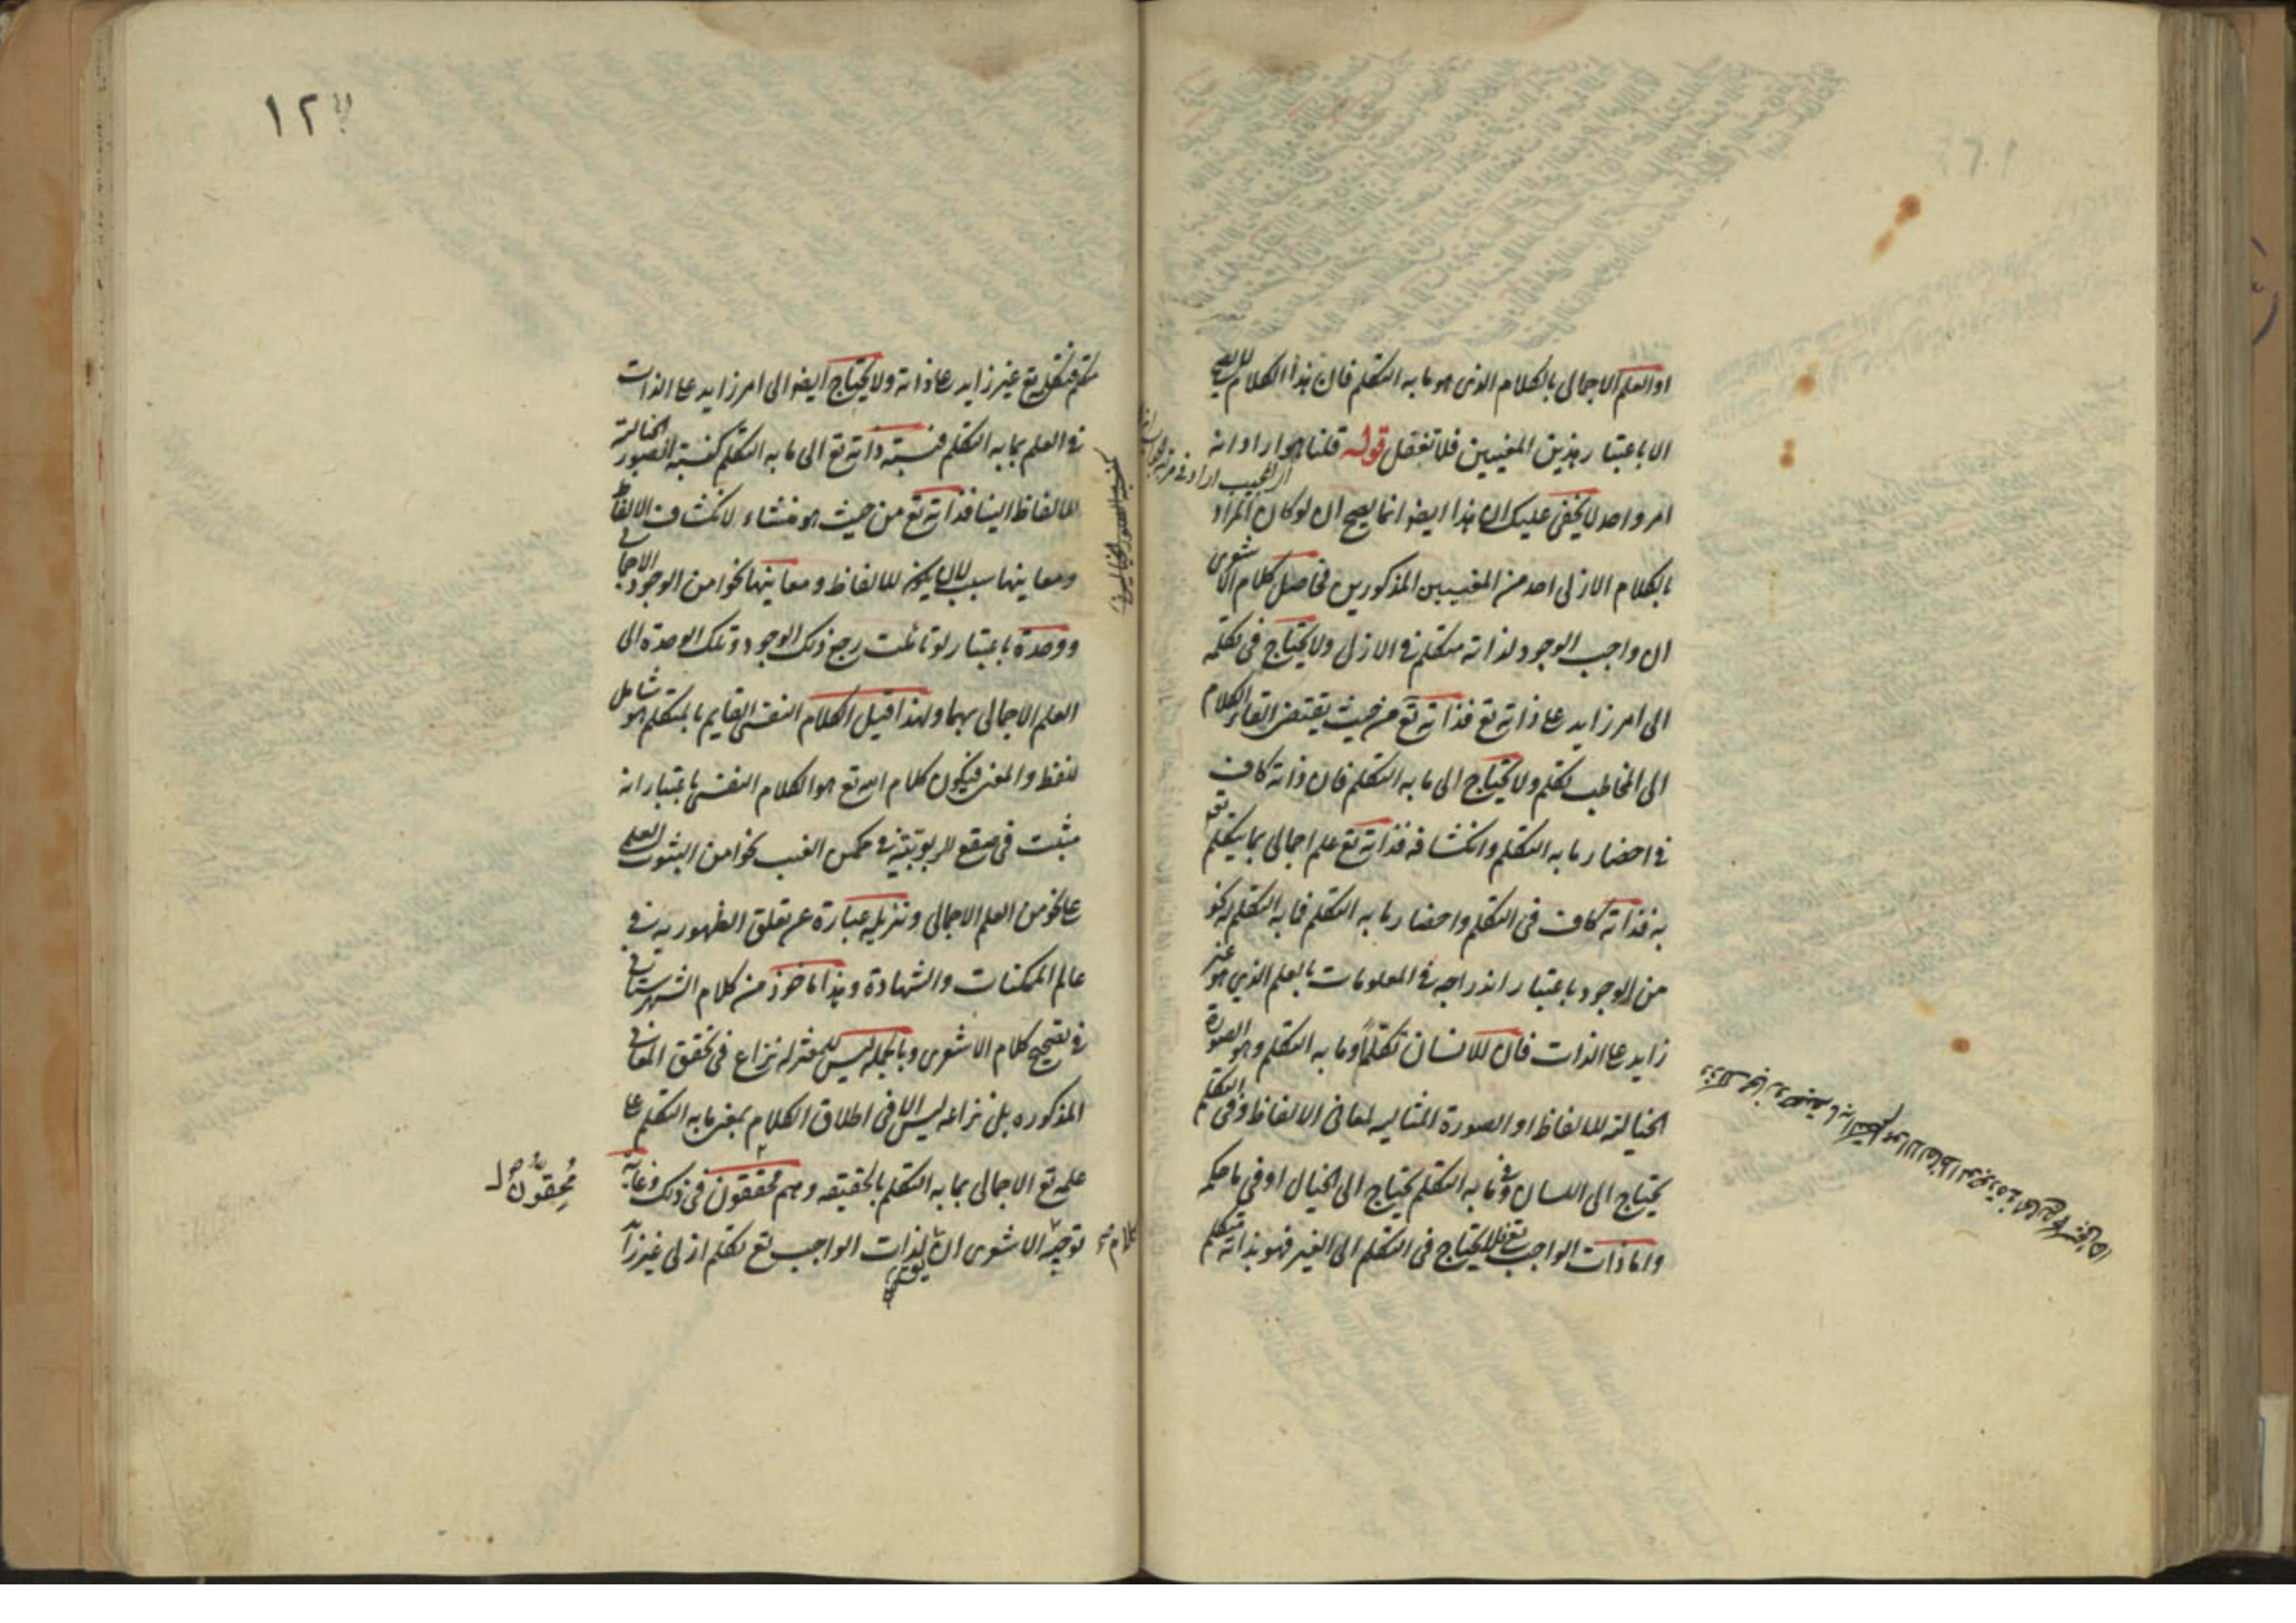 او العلم الاجمالى بالكلام الذى هو ما به التكلم فان هذا الكلام
الا باعتبار هذين المعنيين فلا تغفل قوله قلنا هو اراد انه
امر واحد لا يخفى عليك ان هذا ايضا انما يصح ان لو كان المراد
بالكلام الازلى احد من المعنيين المذكورين فحاصل كلام الاشعرى
ان واجب الوجود لذاته متكلم فى الازل ولا يحتاج فى تكلمه
الى امر زايد على ذاته تع فذاته تع من حيث يقتضى القاء الكلام
الى المخاطب تكلم ولا يحتاج الى ما به التكلم فان ذاته كاف
فى احضار ما به التكلم وانكشافه فذاته تع علم اجمالى بما يتكلم
به فذاته كاف فى التكلم واحضار ما به التكلم فما به التكلم له نحو
من الوجود باعتبار اندراجه فى المعلومات بالعلم الذى هو غير
زايد على الذات فان للانسان تكلماً وما به التكلم وهو الصورة
الخيالية للالفاظ او الصورة المثالية لمعانى الالفاظ وفى التكلم
يحتاج الى اللسان وفى ما به التكلم يحتاج الى الخيال او فى ما حكمه
واما ذات الواجب تع فلا يحتاج فى التكلم الى الغير فهو بذاته متكلم
١٢
متكلم فتكلمه تع غير زايد على ذاته ولا يحتاج ايضا الى امر زايد على الذات
فى العلم بما به التكلم فنسبة ذاته تع الى ما به التكلم كنسبة الصور الخيالية
للالفاظ الينا فذاته تع من حيث هو منشاء لانكشاف الالفاظ
ومعانيها سبب لان يكون للالفاظ ومعانيها نحوا من الوجود الاجمالى
ووحدة باعتبار لو تاملت رجع ذلك الوجود وتلك الوحدة الى
العلم الاجمالى بهما ولهذا قيل الكلام النفسى القايم بالمتكلم هو شامل
للفظ والمعنى فيكون كلام الله تع هو الكلام النفسى باعتبار انه
مثبت فى صقع الربوبية فى مكمن الغيب نحوا من الثبوت العلمى
على نحو من العلم الاجمالى وتنزيله عبارة عن تعلق الظهور به فى
عالم الممكنات والشهادة وهذا ماخوذ من كلام الشهرستانى
فى تصحيح كلام الاشعرى وبالجملة ليس للمعتزلة نزاع فى تحقق المعانى
المذكوره بل نزاعه ليس الا فى اطلاق الكلام بمعنى ما به التكلم على
علمه تع الاجمالى بما به التكلم بالحقيقه وهم محققون فى ذلك وغاية
توجيه كلام الاشعرى ان لذات الواجب تع تكلم ازلى غير زا
مُحِقُّونَ